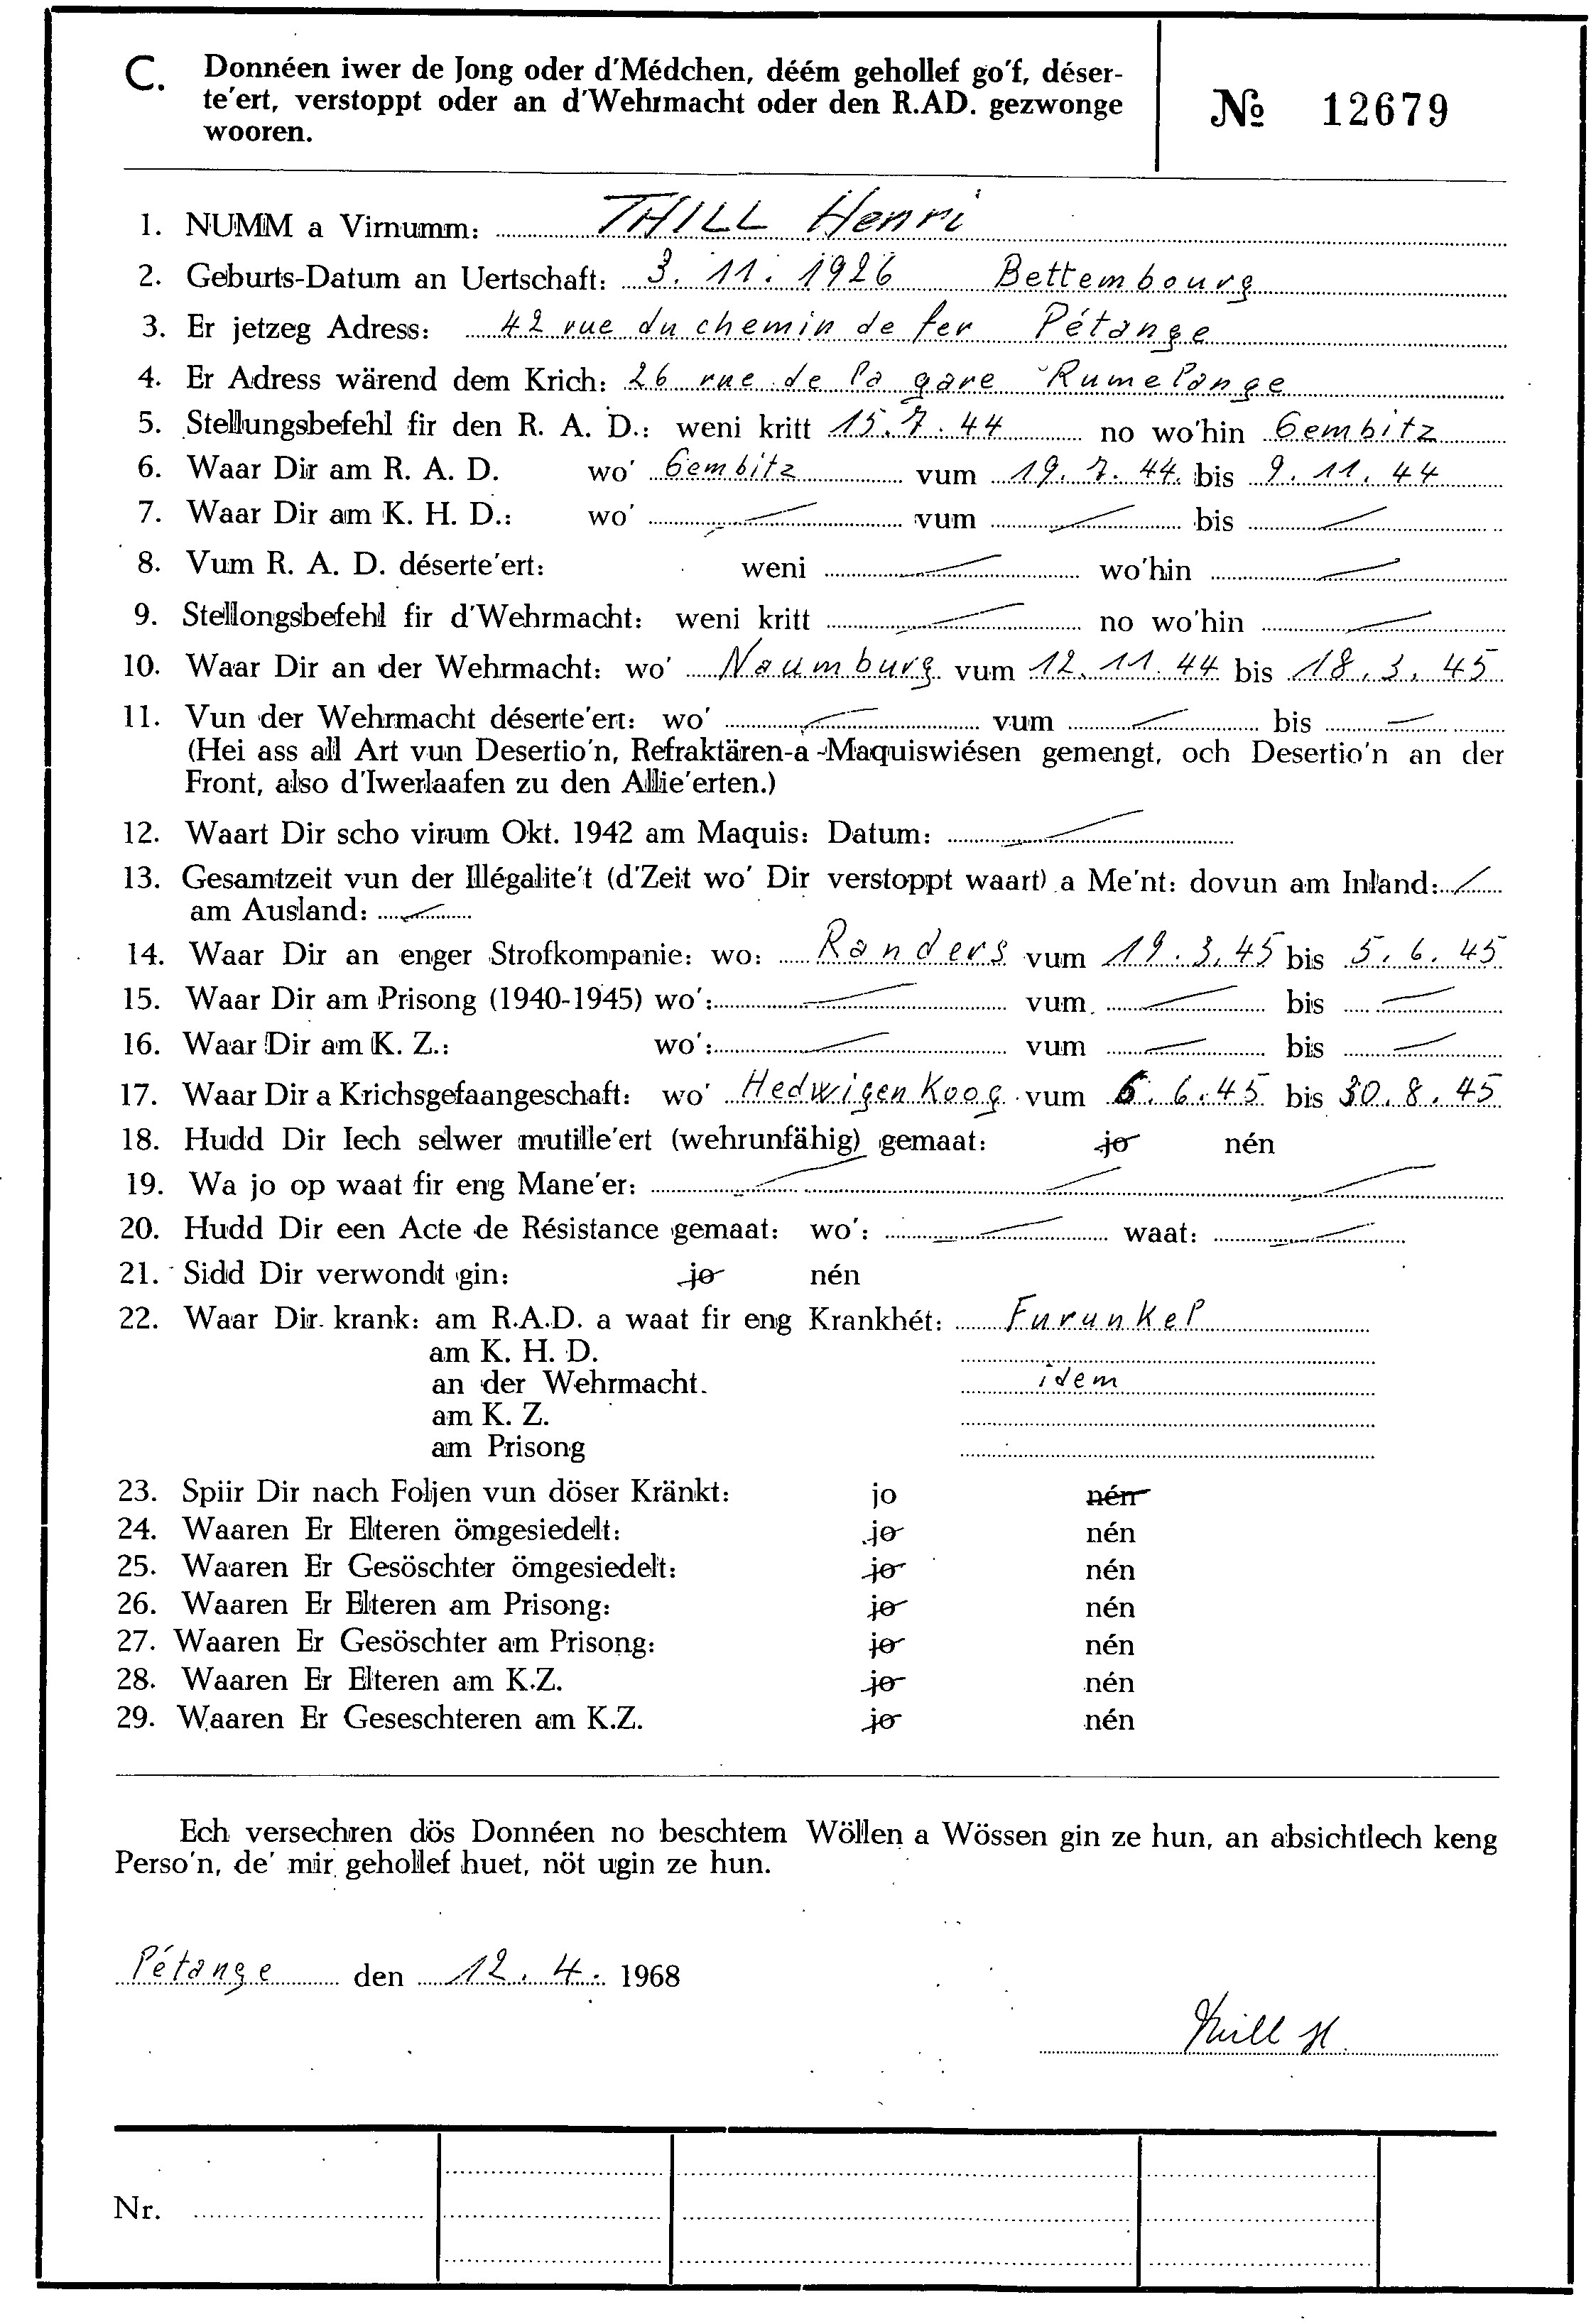 C. Donnéen iwer de Jong oder d'Médchen, déém gehollef go'f, déser-
te'ert, verstoppt oder an d'Wehrmacht oder den R.AD. gezwonge
wooren.
№ 12679
1. NUMM a Virnumm: THILL Henri
2. Geburts-Datum an Uertschaft: 3. 11. 1926 Bettembourg
3. Er jetzeg Adress: 42 rue du chemin de fer Pétange
4. Er Adress wärend dem Krich: 26 rue de la gare Rumelange
5. Stellungsbefehl fir den R. A. D.: weni kritt 15.7.44 no wo'hin Gembitz
6. Waar Dir am R. A. D. wo' Gembitz vum 19.7.44. bis 9.11.44
7. Waar Dir am K. H. D.: wo' vum bis
8. Vum R. A. D. déserte'ert: weni wo'hin
9. Stellongsbefehl fir d'Wehrmacht: weni kritt no wo'hin
10. Waar Dir an der Wehrmacht: wo' Naumburg vum 12.11.44 bis 18.3.45
11. Vun der Wehrmacht déserte'ert: wo' vum bis
(Hei ass all Art vun Desertio'n, Refraktären-a-Maquiswiésen gemengt, och Desertio'n an der
Front, also d'Iwerlaafen zu den Allie'erten.)
12. Waart Dir scho virum Okt. 1942 am Maquis: Datum:
13. Gesamtzeit vun der Illégalite't (d'Zeit wo' Dir verstoppt waart) a Me'nt: dovun am Inland:
am Ausland:
14. Waar Dir an enger Strofkompanie: wo: Randers vum 19.3.45 bis 5.6.45
15. Waar Dir am Prisong (1940-1945) wo': vum bis
16. Waar Dir am K. Z.: wo': vum bis
17. Waar Dir a Krichsgefaangeschaft: wo' Hedwigen Koog vum 6.6.45 bis 30.8.45
18. Hudd Dir Iech selwer mutille'ert (wehrunfähig) gemaat: jo nén
19. Wa jo op waat fir eng Mane'er:
20. Hudd Dir een Acte de Résistance gemaat: wo': waat:
21. Sidd Dir verwondt gin: jo nén
22. Waar Dir krank: am R.A.D. a waat fir eng Krankhét: Furunkel
am K. H. D.
an der Wehrmacht. idem
am K. Z.
am Prisong
23. Spiir Dir nach Foljen vun döser Kränkt: jo nén
24. Waaren Er Elteren ömgesiedelt: jo nén
25. Waaren Er Gesöschter ömgesiedelt: jo nén
26. Waaren Er Elteren am Prisong: jo nén
27. Waaren Er Gesöschter am Prisong: jo nén
28. Waaren Er Elteren am K.Z. jo nén
29. Waaren Er Geseschteren am K.Z. jo nén
Ech versechren dös Donnéen no beschtem Wöllen a Wössen gin ze hun, an absichtlech keng
Perso'n, de' mir gehollef huet, nöt ugin ze hun.
Pétange den 12.4. 1968
Thill H.
Nr.